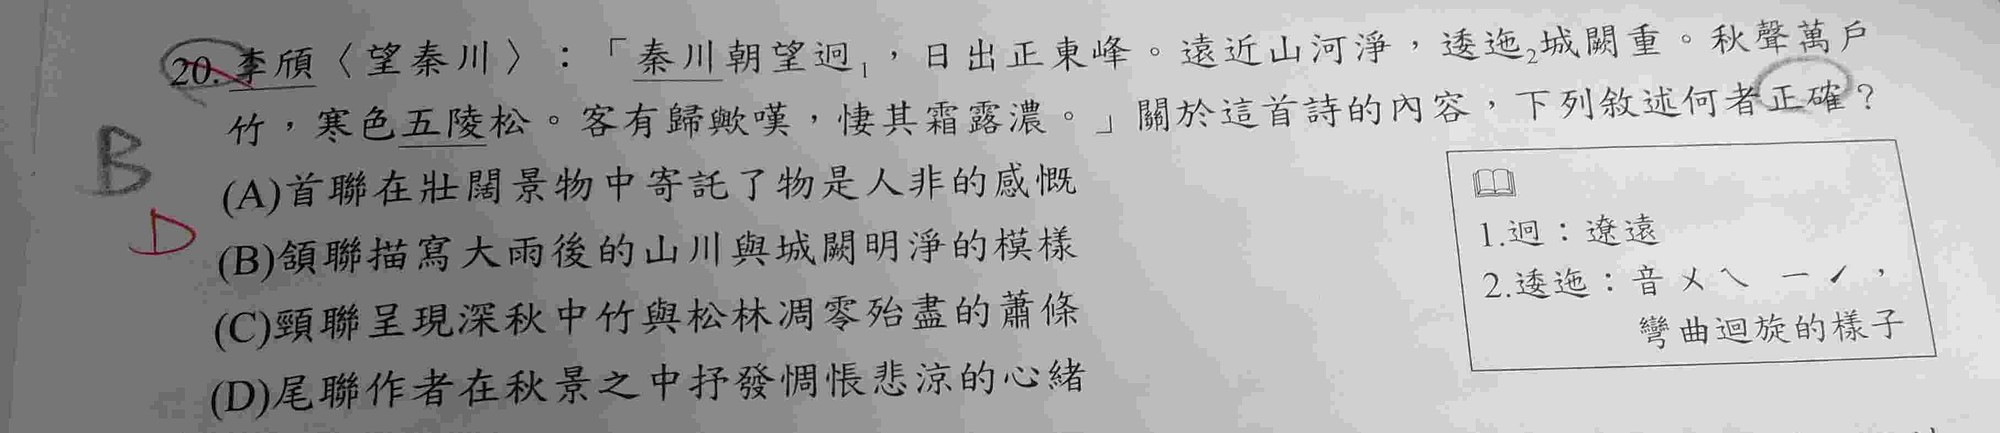 20.李頎〈望秦川〉：「秦川朝望迥1，日出正東峰。遠近山河淨，逶迤2城闕重。秋聲萬戶
竹，寒色五陵松。客有歸歟嘆，悽其霜露濃。」關於這首詩的內容，下列敘述何者正確？
B
(A)首聯在壯闊景物中寄託了物是人非的感慨
D
(B)頷聯描寫大雨後的山川與城闕明淨的模樣
(C)頸聯呈現深秋中竹與松林凋零殆盡的蕭條
(D)尾聯作者在秋景之中抒發惆悵悲涼的心緒
1.迥：遼遠
2.逶迤：音ㄨㄟ ㄧˊ，
彎曲迴旋的樣子